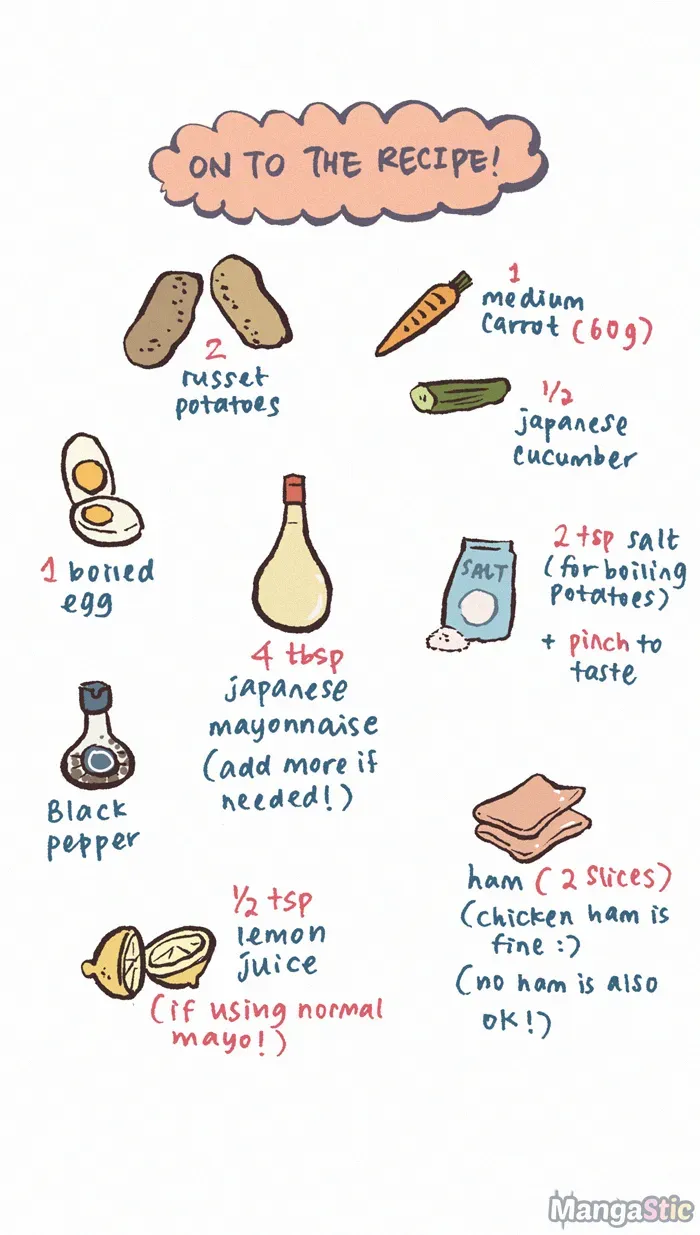 ON TO THE RECIPE!
2
russet
potatoes
1
medium
carrot (60g)
1/2
japanese
cucumber
1 boiled
egg
4 tbsp
japanese
mayonnaise
(add more if
needed!)
SALT
2 tsp salt
(for boiling
potatoes)
+ pinch to
taste
Black
pepper
1/2 tsp
lemon
juice
(if using normal
mayo!)
ham (2 slices)
(chicken ham is
fine :)
(no ham is also
OK!)
MangaStic